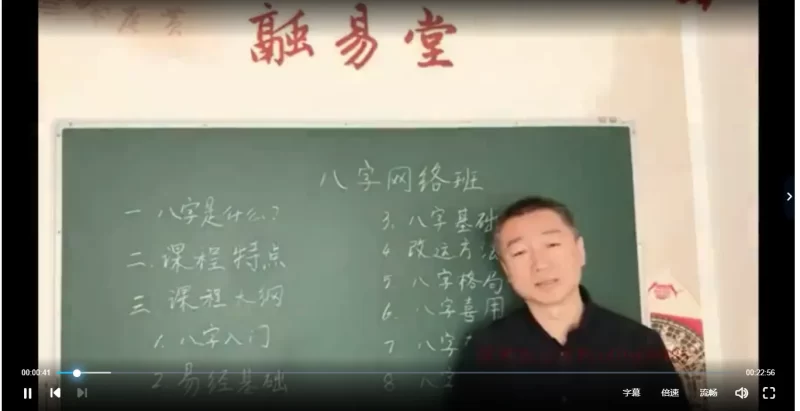 融易堂
八字网络班
一 八字是什么?
二.课程特点
三 课程大纲
1. 八字入门
2 易经基础
3. 八字基础
4 改运方法
5 八字格局
6. 八字喜用
7 八字
8 八
00:00:41
00:22:56
字幕
倍速
流畅